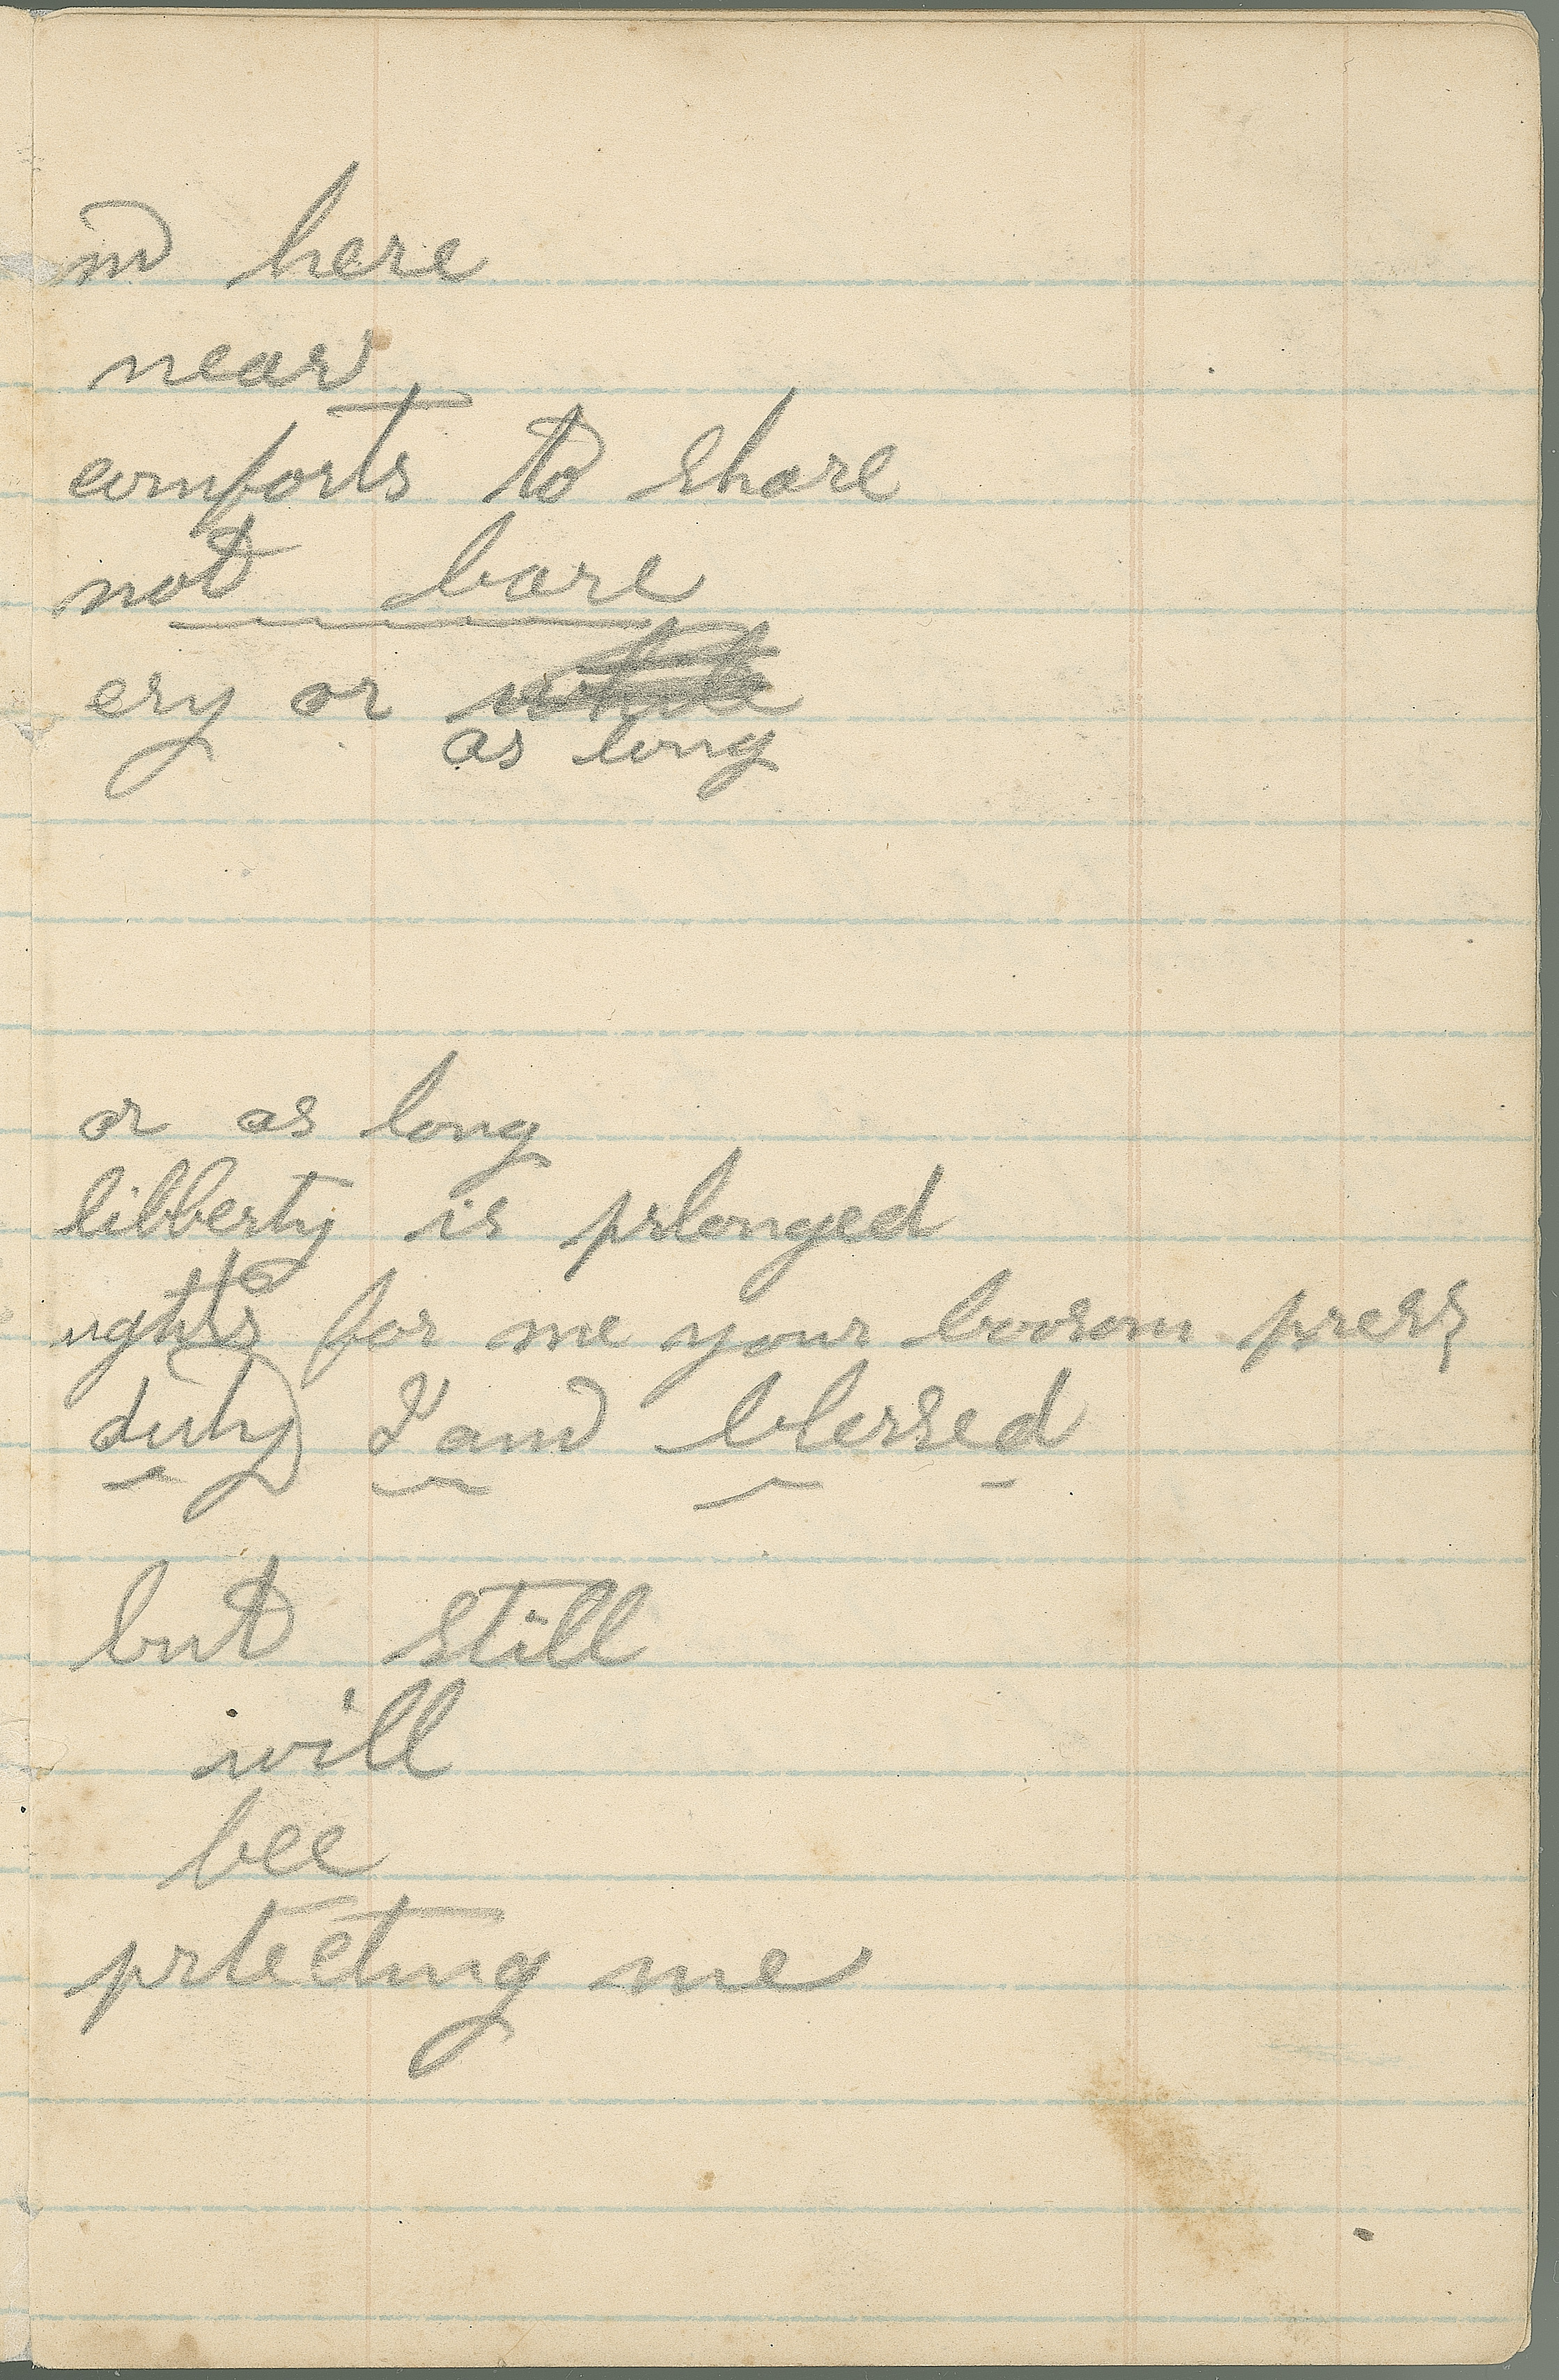 in here
near
comforts to share
not bare
ery or
as long
or as long
libberty is prlonged
ughts for me your boosom press
duty I am blessed
but still
will
bee
prtecting me